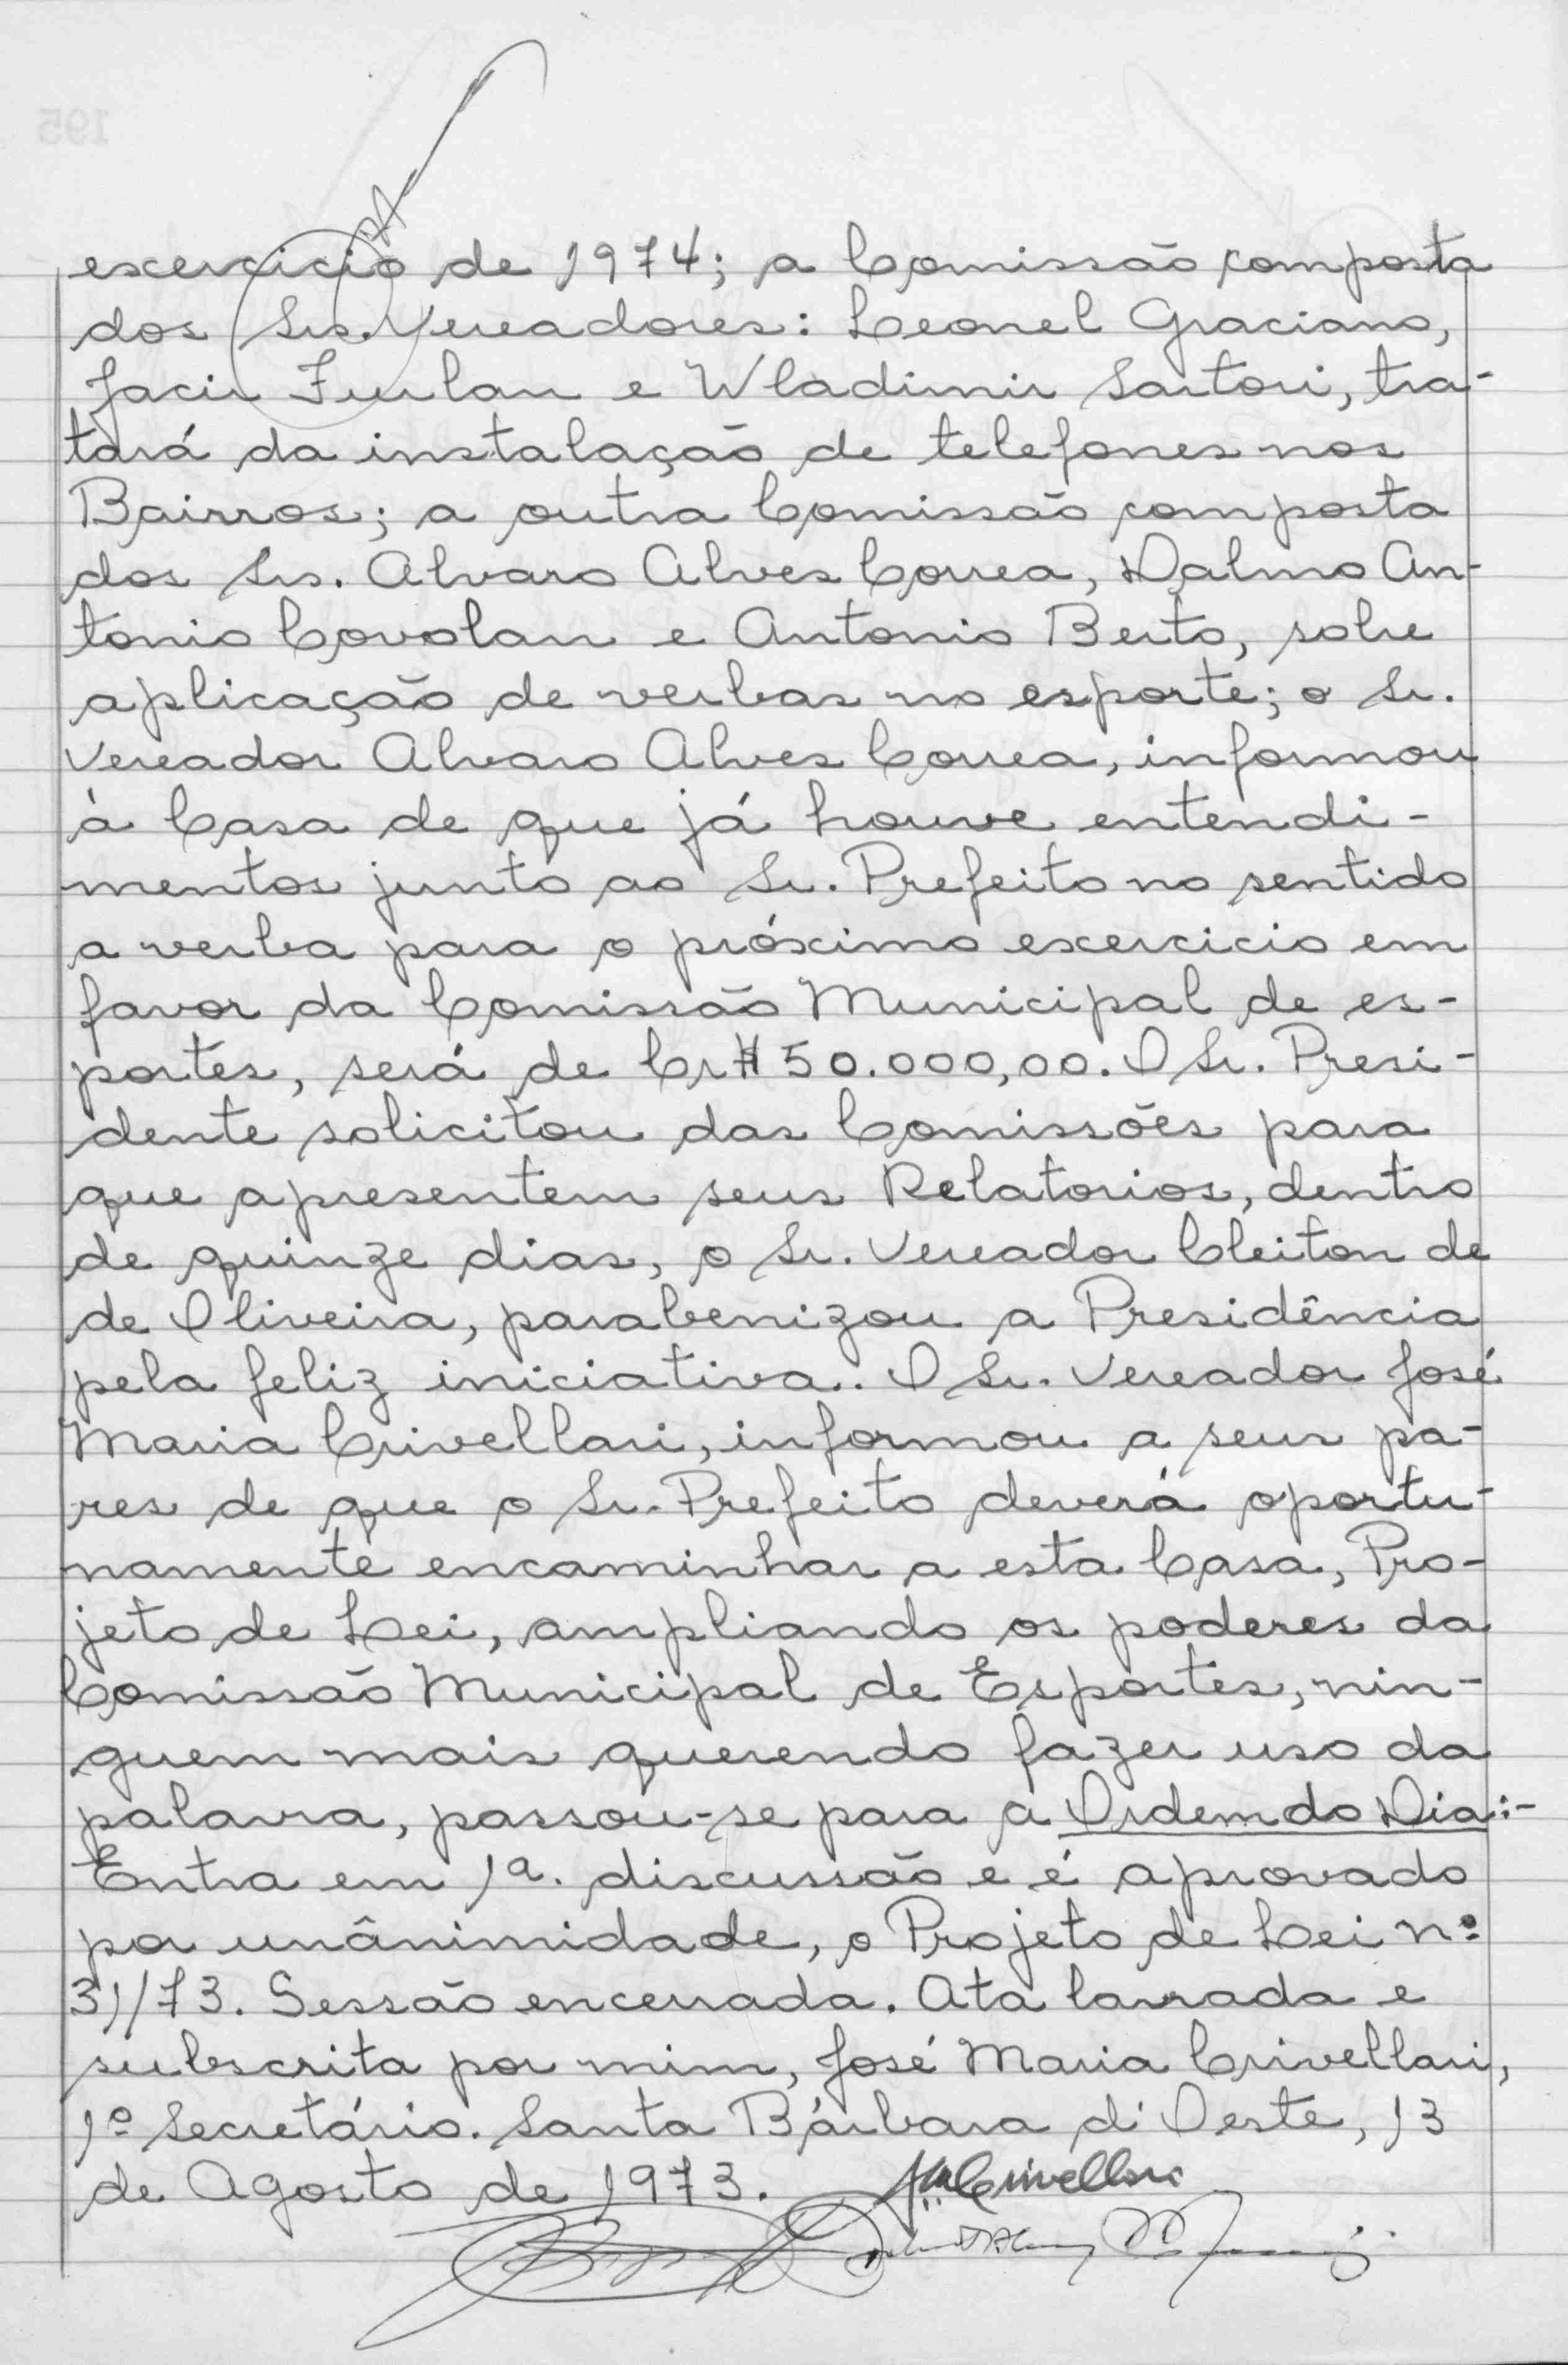 exercicio de 1974; a Comissão composta
dos Srs. Vereadores: Leonel Graciano,
Jacir Furlan e Wladimir Sartori, tra-
tará da instalação de telefones nos
Bairros; a outra Comissão composta
dos Srs. Alvaro Alves Correa, Dalmo An-
tonio Covolan e Antonio Berto, sobre
aplicação de verbas no esporte; o Sr.
Vereador Alvaro Alves Correa, informou
à Casa de que já houve entendi-
mentos junto ao Sr. Prefeito no sentido
a verba para o próximo exercicio em
favor da Comissão Municipal de es-
portes, será de Cr$ 50.000,00. O Sr. Presi-
dente solicitou das Comissões para
que apresentem seus Relatorios, dentro
de quinze dias, o Sr. Vereador Cleiton de
de Oliveira, parabenizou a Presidência
pela feliz iniciativa. O Sr. Vereador José
Maria Crivellari, informou a seus pa-
res de que o Sr. Prefeito deverá oportu-
namente encaminhar a esta Casa, Pro-
jeto de Lei, ampliando os poderes da
Comissão Municipal de Esportes, nin-
guem mais querendo fazer uso da
palavra, passou-se para a Ordem do Dia:-
Entra em 1ª. discussão e é aprovado
por unânimidade, o Projeto de Lei nº
31/73. Sessão encerrada. Ata lavrada e
subscrita por mim, José Maria Crivellari,
1º Secretário. Santa Bárbara d'Oeste, 13
de Agosto de 1973. JMCrivellari